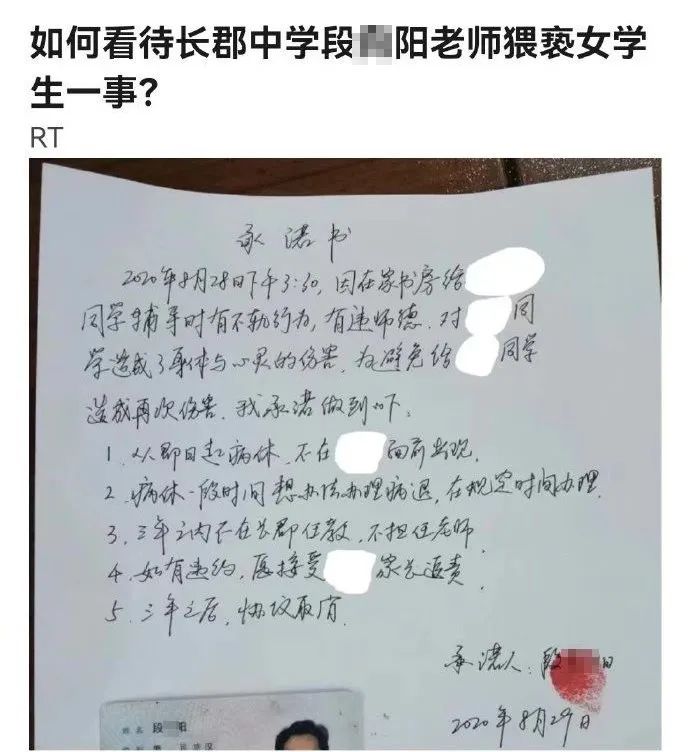 如何看待长郡中学段阳老师猥亵女学
生一事?
RT
承诺书
2020年8月28日下午3:30,因在家书房给
同学辅导时有不轨行为,有违师德.对 同
学造成了身体与心灵的伤害,为避免给 同学
造成再次伤害.我承诺做到以下:
1.从即日起病休,不在 面前出现.
2.病休一段时间想办法办理病退,在规定时间办理.
3.三年之内不在长郡任教,不担任老师
4.如有违约,愿接受 家长追责.
5.三年之后,协议取消.
承诺人:段
2020年8月29日
姓名 段 阳